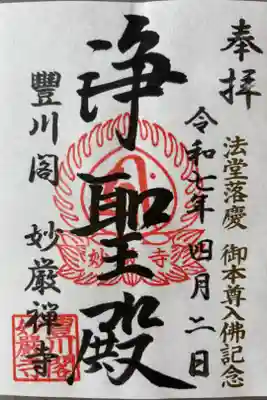 奉拝
法堂落慶 御本尊入佛記念
令和七年 四月二日
浄聖殿
妙 寺
豐川閣 妙厳禅寺
豊川閣
妙嚴寺